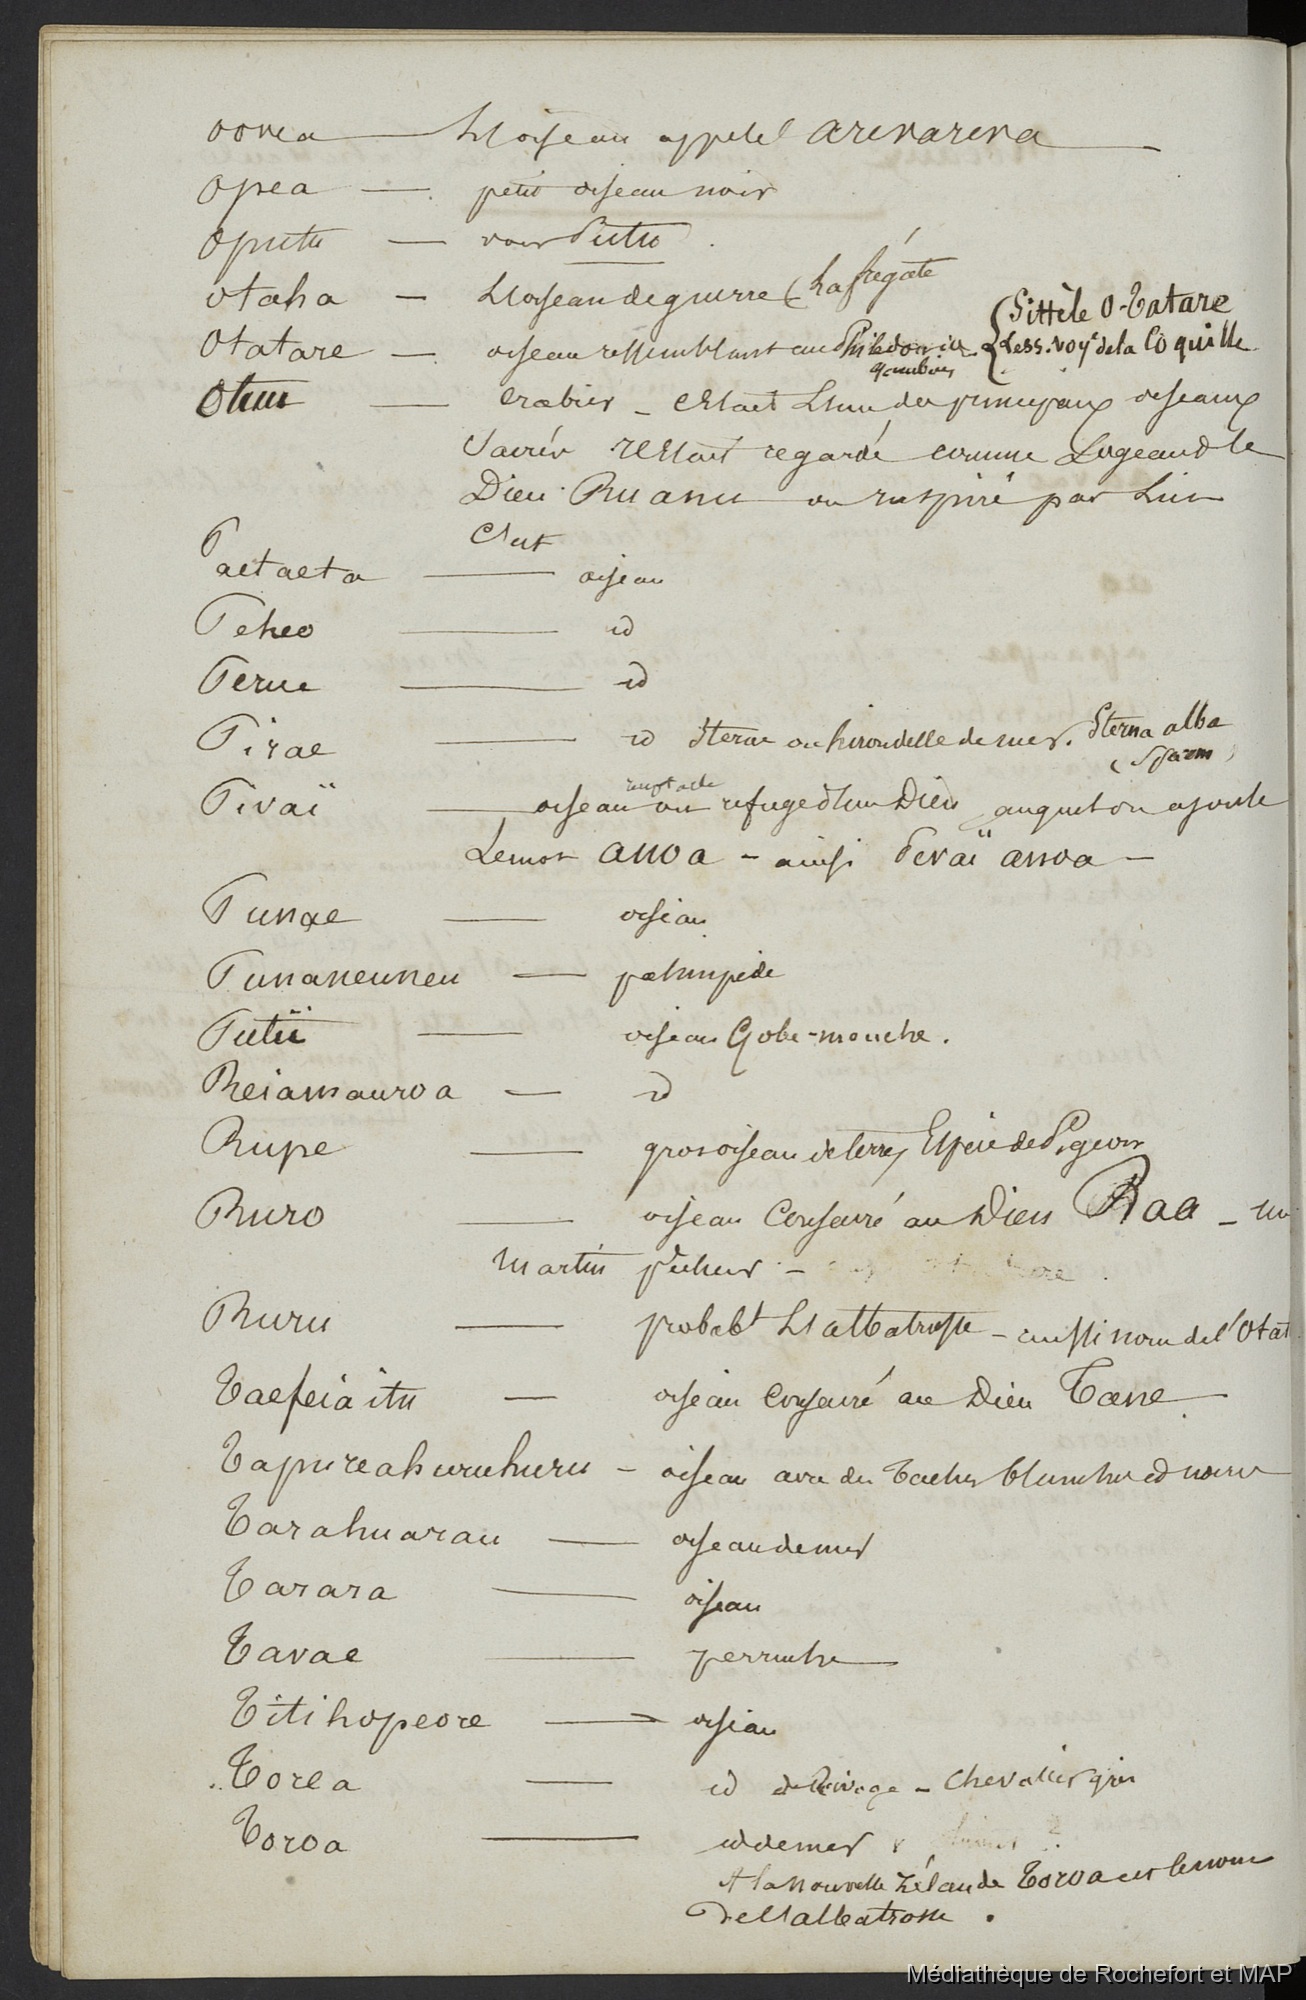 oovea — L'oiseau appelé arevareva —
opea — petit oiseau noir
oputu — voir Putu
otaha — L'oiseau de guerre (La frégate
Otatare — oiseau ressemblant au Philedon { Sittèle O-Tatare
Less. voy. de la Coquille
Otuu — Crabier - C'était L'un des principaux oiseaux
Sacrés il était regardé comme Logeant le
Dieu Ruanu ou inspiré par Lui
C'est
Paetaeta — oiseau
Peheo — id
Perue — id
Pirae — id Sterne ou hirondelle de mer. Sterna alba
(Sparm)
receptacle
Pivaï — oiseau ou refuge d'un Dieu auquel on ajoute
Le mot anoa - ainsi Pevaï anoa -
Punae — oiseau
Punaneuneu — palmipède
Putii — oiseau Gobe-mouche.
Reiamauroa — id
Rupe — gros oiseau de terre, Espèce de Pigeon
Ruro — oiseau Consacré au Dieu Raa - un
martin pêcheur -
Ruru — probabt L'albatrosse - aussi nom de l'Otat
Taefeiaitu — oiseau Consacré au Dieu Tane
Tapureahuruhuru - oiseau avec des Taches blanches et noires
Tarahuarau — oiseau de mer
Tarara — oiseau
Tavae — perruche
Titihopeore — oiseau
Torea — id de Rivage - Chevalier gris
Toroa — id de mer
A la nouvelle Zélande Toroa est le nom
De L'albatrosse.
Médiathèque de Rochefort et MAP